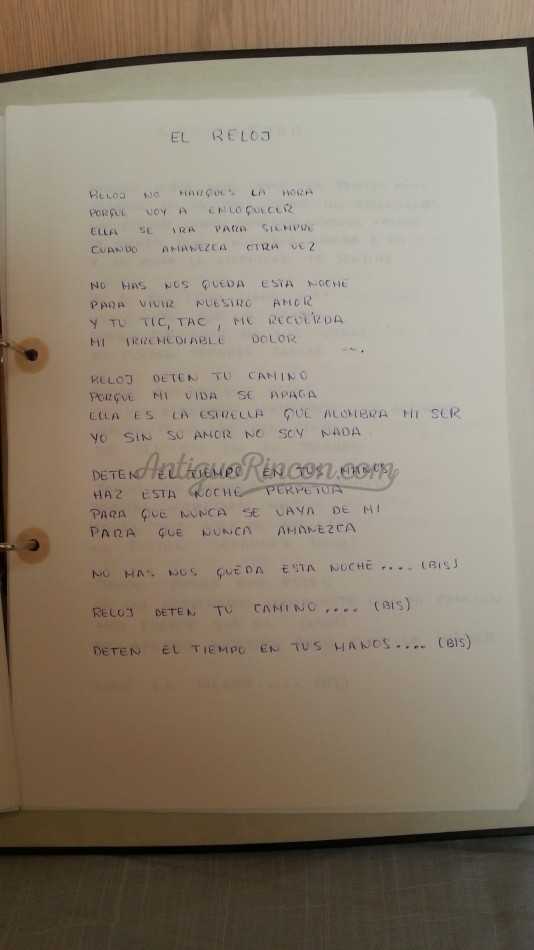 EL RELOJ
RELOJ NO MARQUES LA HORA
PORQUE VOY A ENLOQUECER
ELLA SE IRA PARA SIEMPRE
CUANDO AMANEZCA OTRA VEZ
NO MAS NOS QUEDA ESTA NOCHE
PARA VIVIR NUESTRO AMOR
Y TU TIC, TAC, ME RECUERDA
MI IRREMEDIABLE DOLOR
RELOJ DETEN TU CAMINO
PORQUE MI VIDA SE APAGA
ELLA ES LA ESTRELLA QUE ALOMBRA MI SER
YO SIN SU AMOR NO SOY NADA
DETEN EL TIEMPO EN TUS MANOS
AntiguoRincon.com
HAZ ESTA NOCHE PERPETUA
PARA QUE NUNCA SE VAYA DE MI
PARA QUE NUNCA AMANEZCA
NO MAS NOS QUEDA ESTA NOCHE.... (BIS)
RELOJ DETEN TU CAMINO.... (BIS)
DETEN EL TIEMPO EN TUS MANOS.... (BIS)